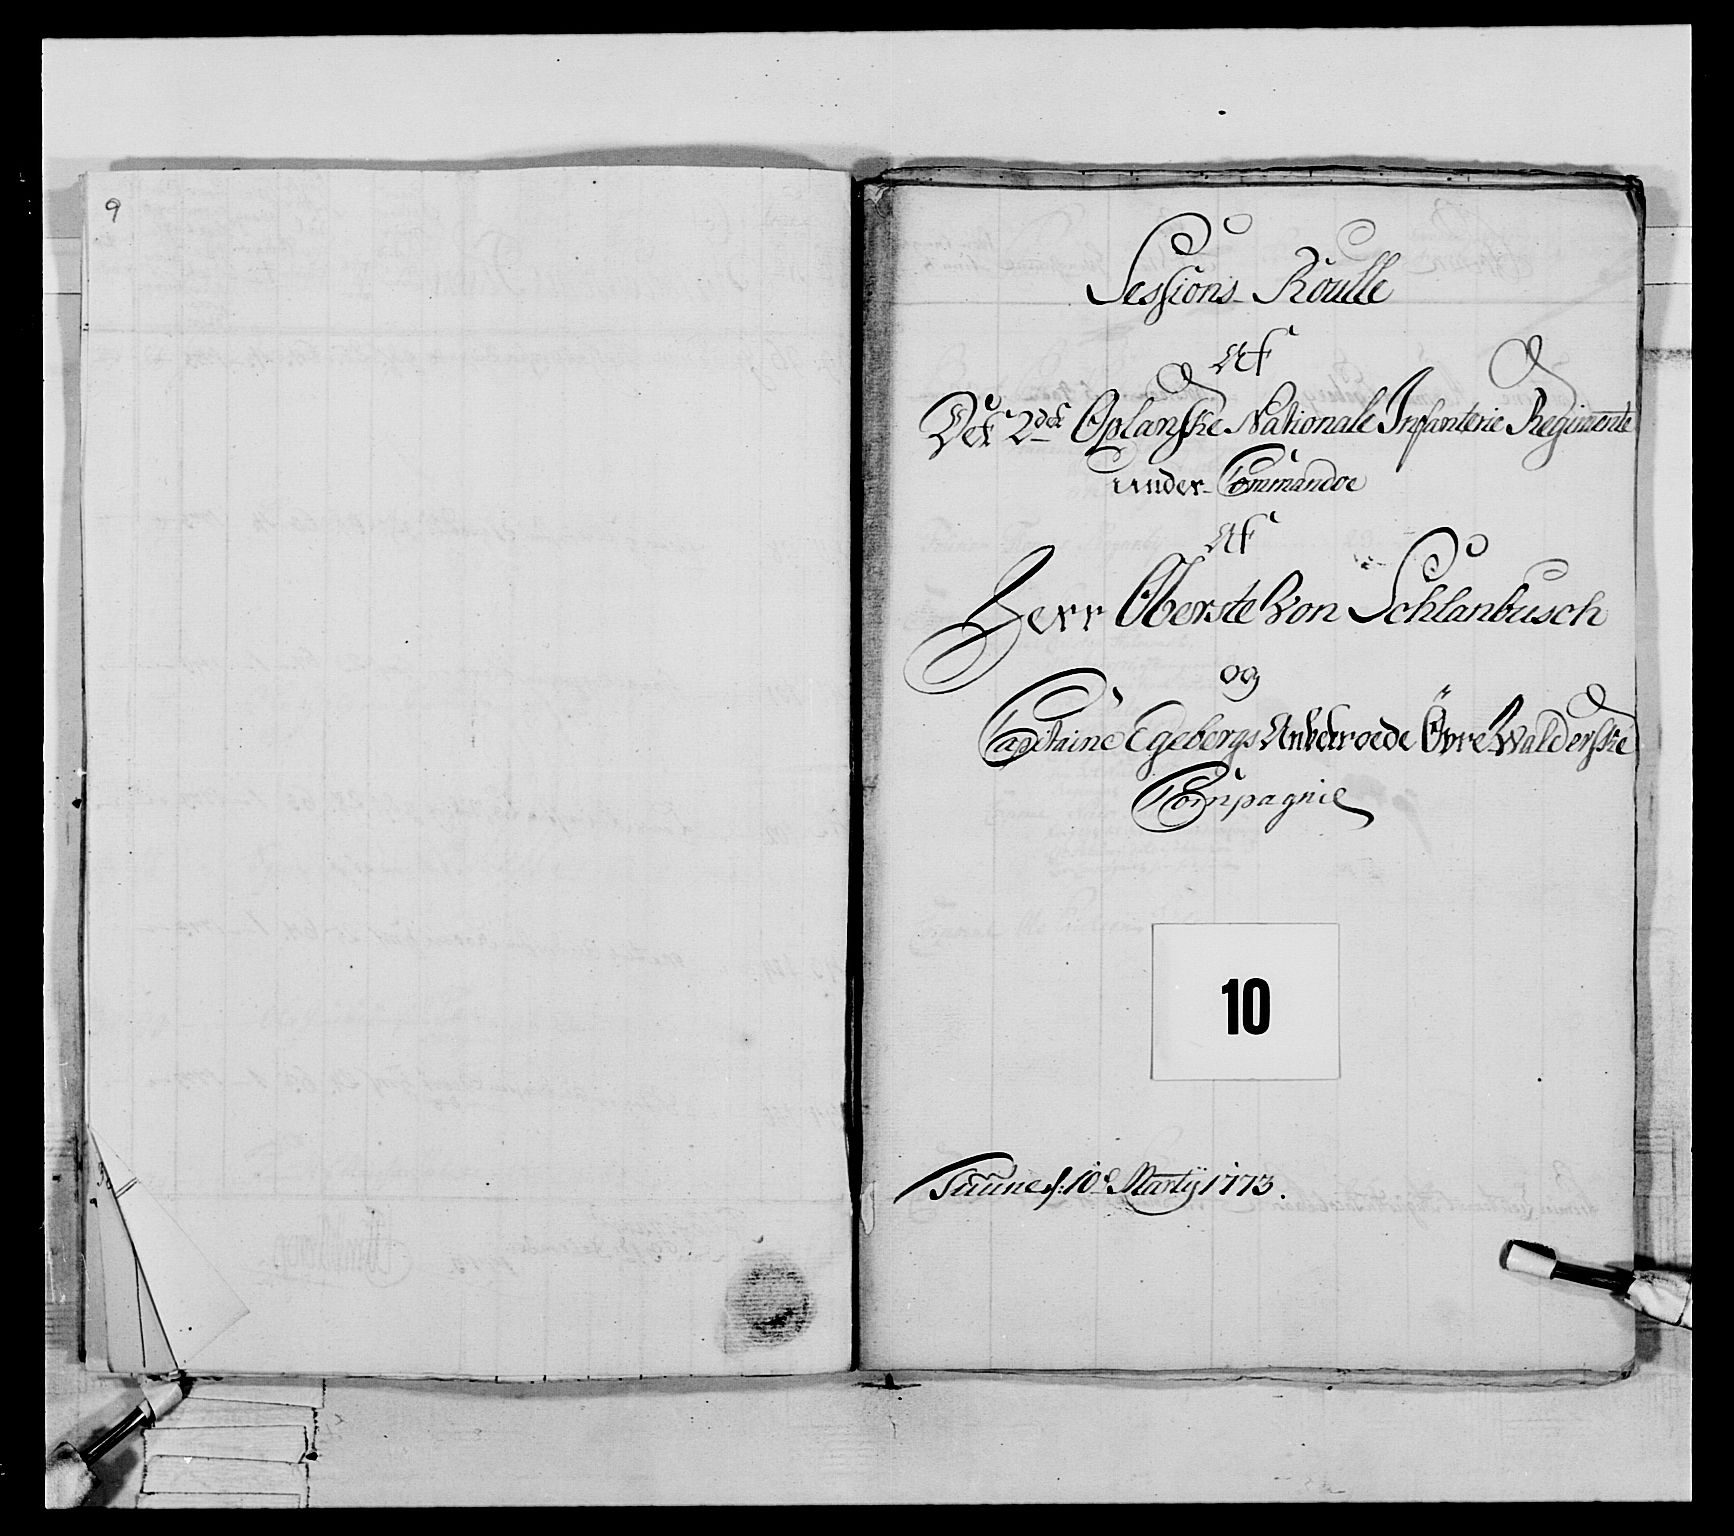 9
Sessions Roulle
Af
Det 2det Oplanske Nationale Infanterie Regimente
Under Commandoe
Af
Herr Oberste Von Schlanbusch
og
Capitaine Egebergs Anvertroede Övre Walderske
Compagnie
10
Tuune d: 10d Martÿ 1773.